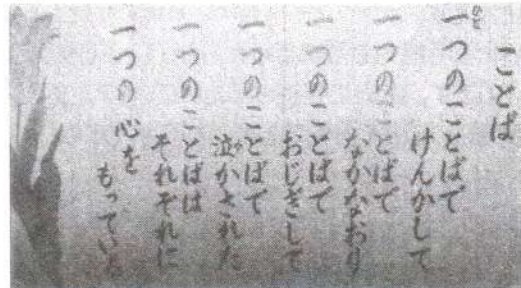 ことば
一つのことばで
けんかして
一つのことばで
なかなおり
一つのことばで
おじぎして
一つのことばで
泣かされた
一つのことばは
それぞれに
一つの心を
もっている